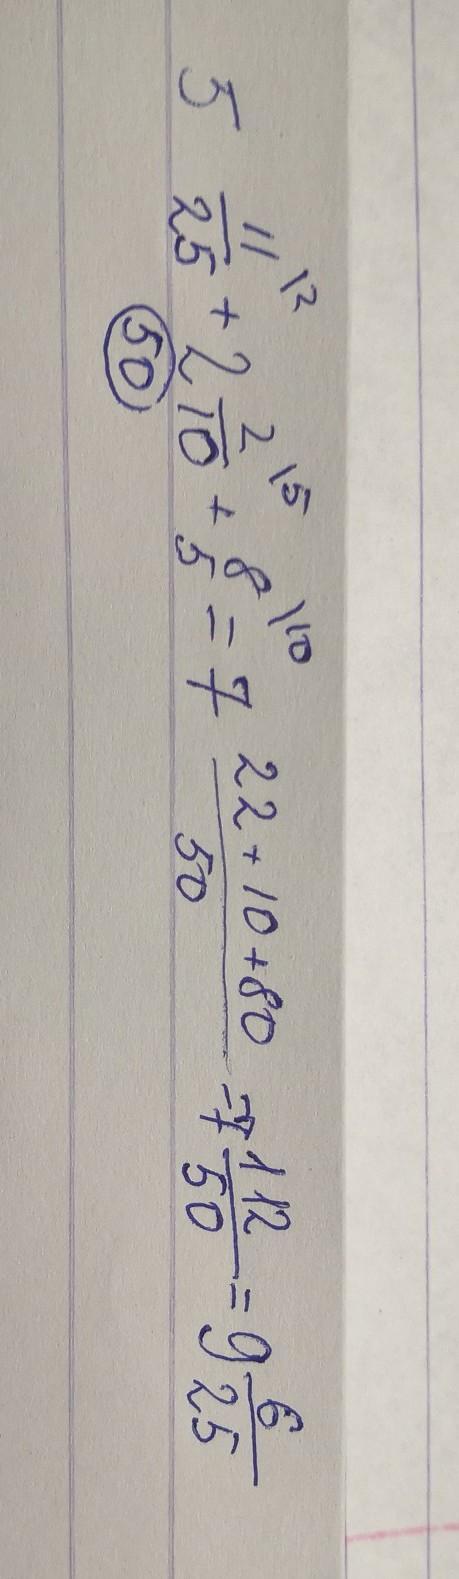 5 11/25 \2 + 2 2/10 \5 + 8/5 \10 = 7 22+10+80/50 = 7 112/50 = 9 6/25
50